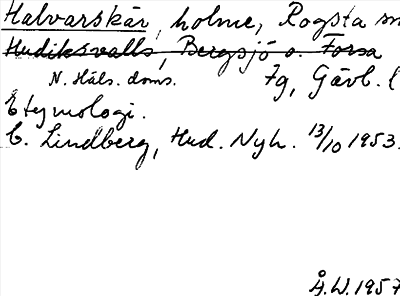 Halvarskär, holme, Rogsta sn
Hudiksvalls, Bergsjö o. Forsa
N. Häls. doms. Fg, Gävl. l
Etymologi.
C. Lindberg, Hud. Nyh. 13/10 1953.
Å.W. 1957